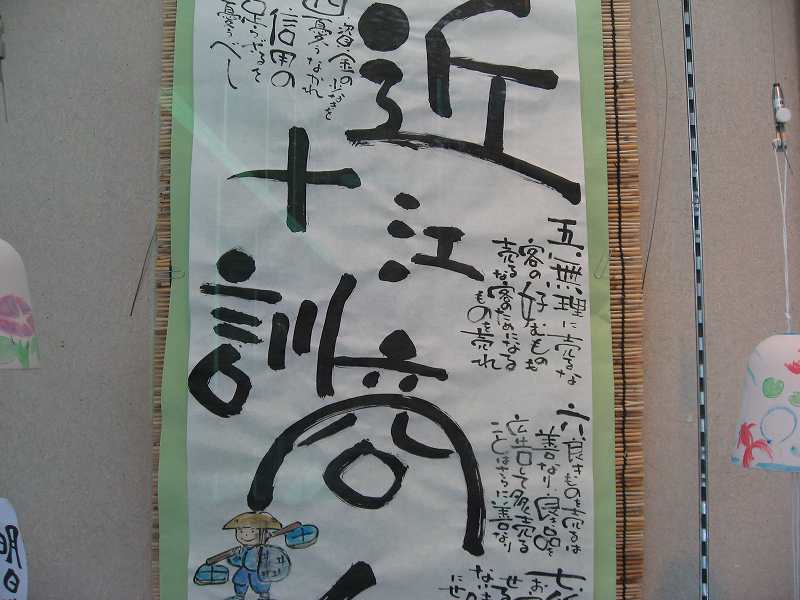 近江商
十訓
四・資金の少なきを
憂うなかれ
信用の
足らざるを
憂うべし
五・無理に売るな
客の好むものも
売るな客のためになる
ものを売れ
六・良きものを売るは
善なり・良き品を
広告して多く売る
ことはさらに善なり
七
お
せる
ない
にせ
明日